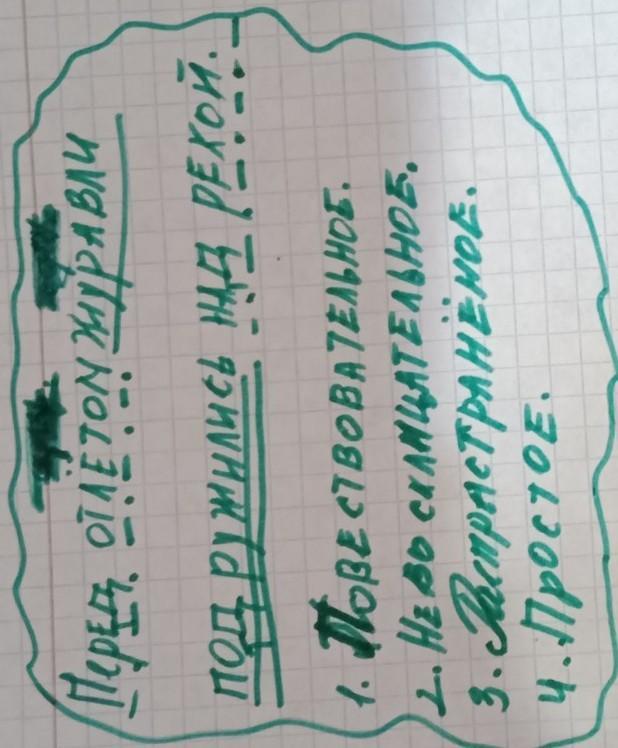 Перед отлетом журавли
под ружились над рекой.
1. Повествовательное.
2. Невосклицательное.
3. Распрастранёное.
4. Простое.